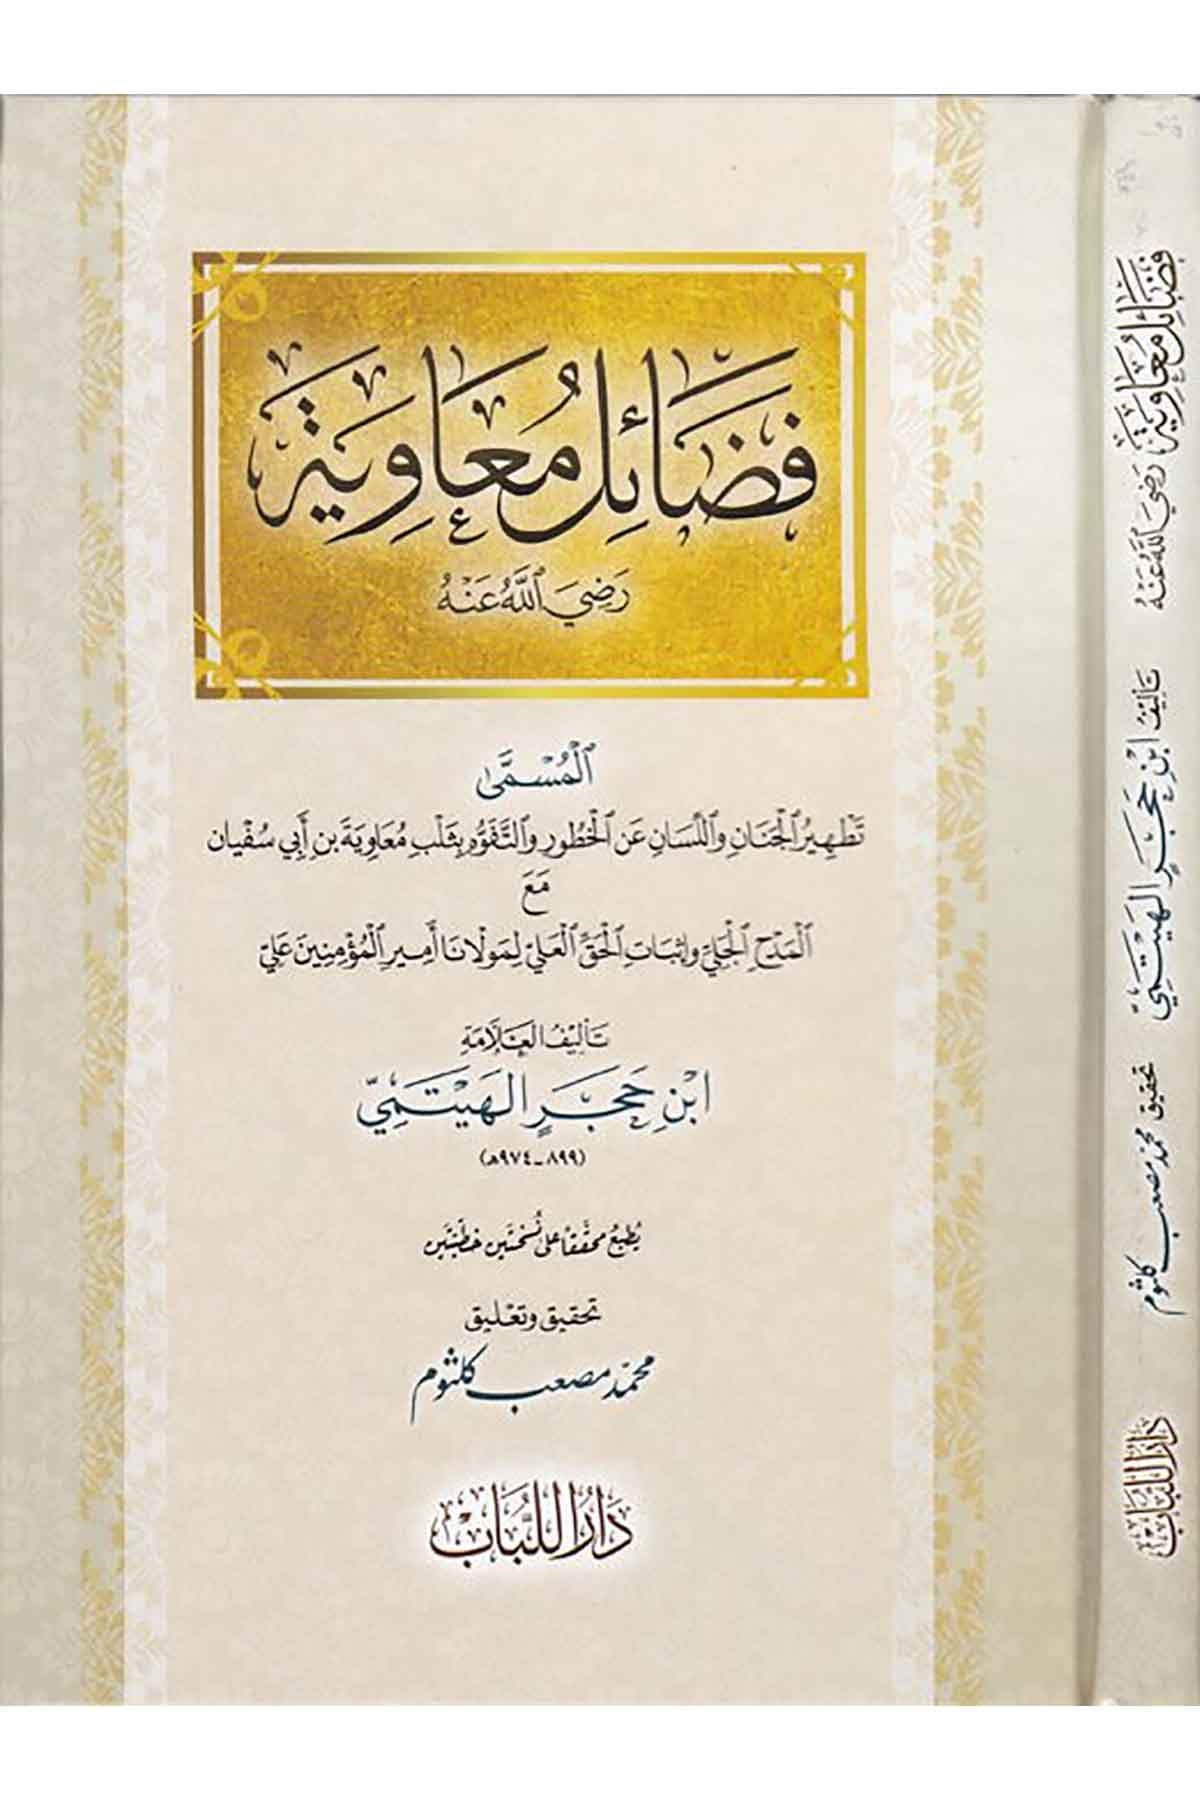 فَضَائِل مُعَاوِيَة
رَضِيَ ٱللَّهُ عَنْهُ
ٱلْمُسَمَّىٰ
تَطْهِيرُ ٱلْجَنَانِ وَٱللِّسَانِ عَنِ ٱلْخُطُورِ وَٱلتَّفَوُّهِ بِثَلْبِ مُعَاوِيَةَ بنِ أَبِي سُفْيان
مَعَ
ٱلْمَدْحِ ٱلْجَلِيِّ وَإِثْبَاتِ ٱلْحَقِّ ٱلْعَلِيِّ لِمَوْلَانَا أَمِيرِ ٱلْمُؤْمِنِينَ عَلِيّ
تَأْلِيفُ العَلَّامَةِ
ابْنِ حَجَرٍ الهَيْتَمِيِّ
(٨٩٩-٩٧٤هـ)
يُطْبَعُ محقَّقاً على نُسْخَتَين خطّيّتَين
تحقيق وتعليق
محمّد مصعب كلثوم
دَارُ اللُّبَابِ
فَضَائِل مُعَاوِيَة رَضِيَ ٱللَّهُ عَنْهُ
تَأْلِيفُ ابْنِ حَجَرٍ الهَيْتَمِيِّ
تحقيق محمّد مصعب كلثوم
دَارُ اللُّبَابِ